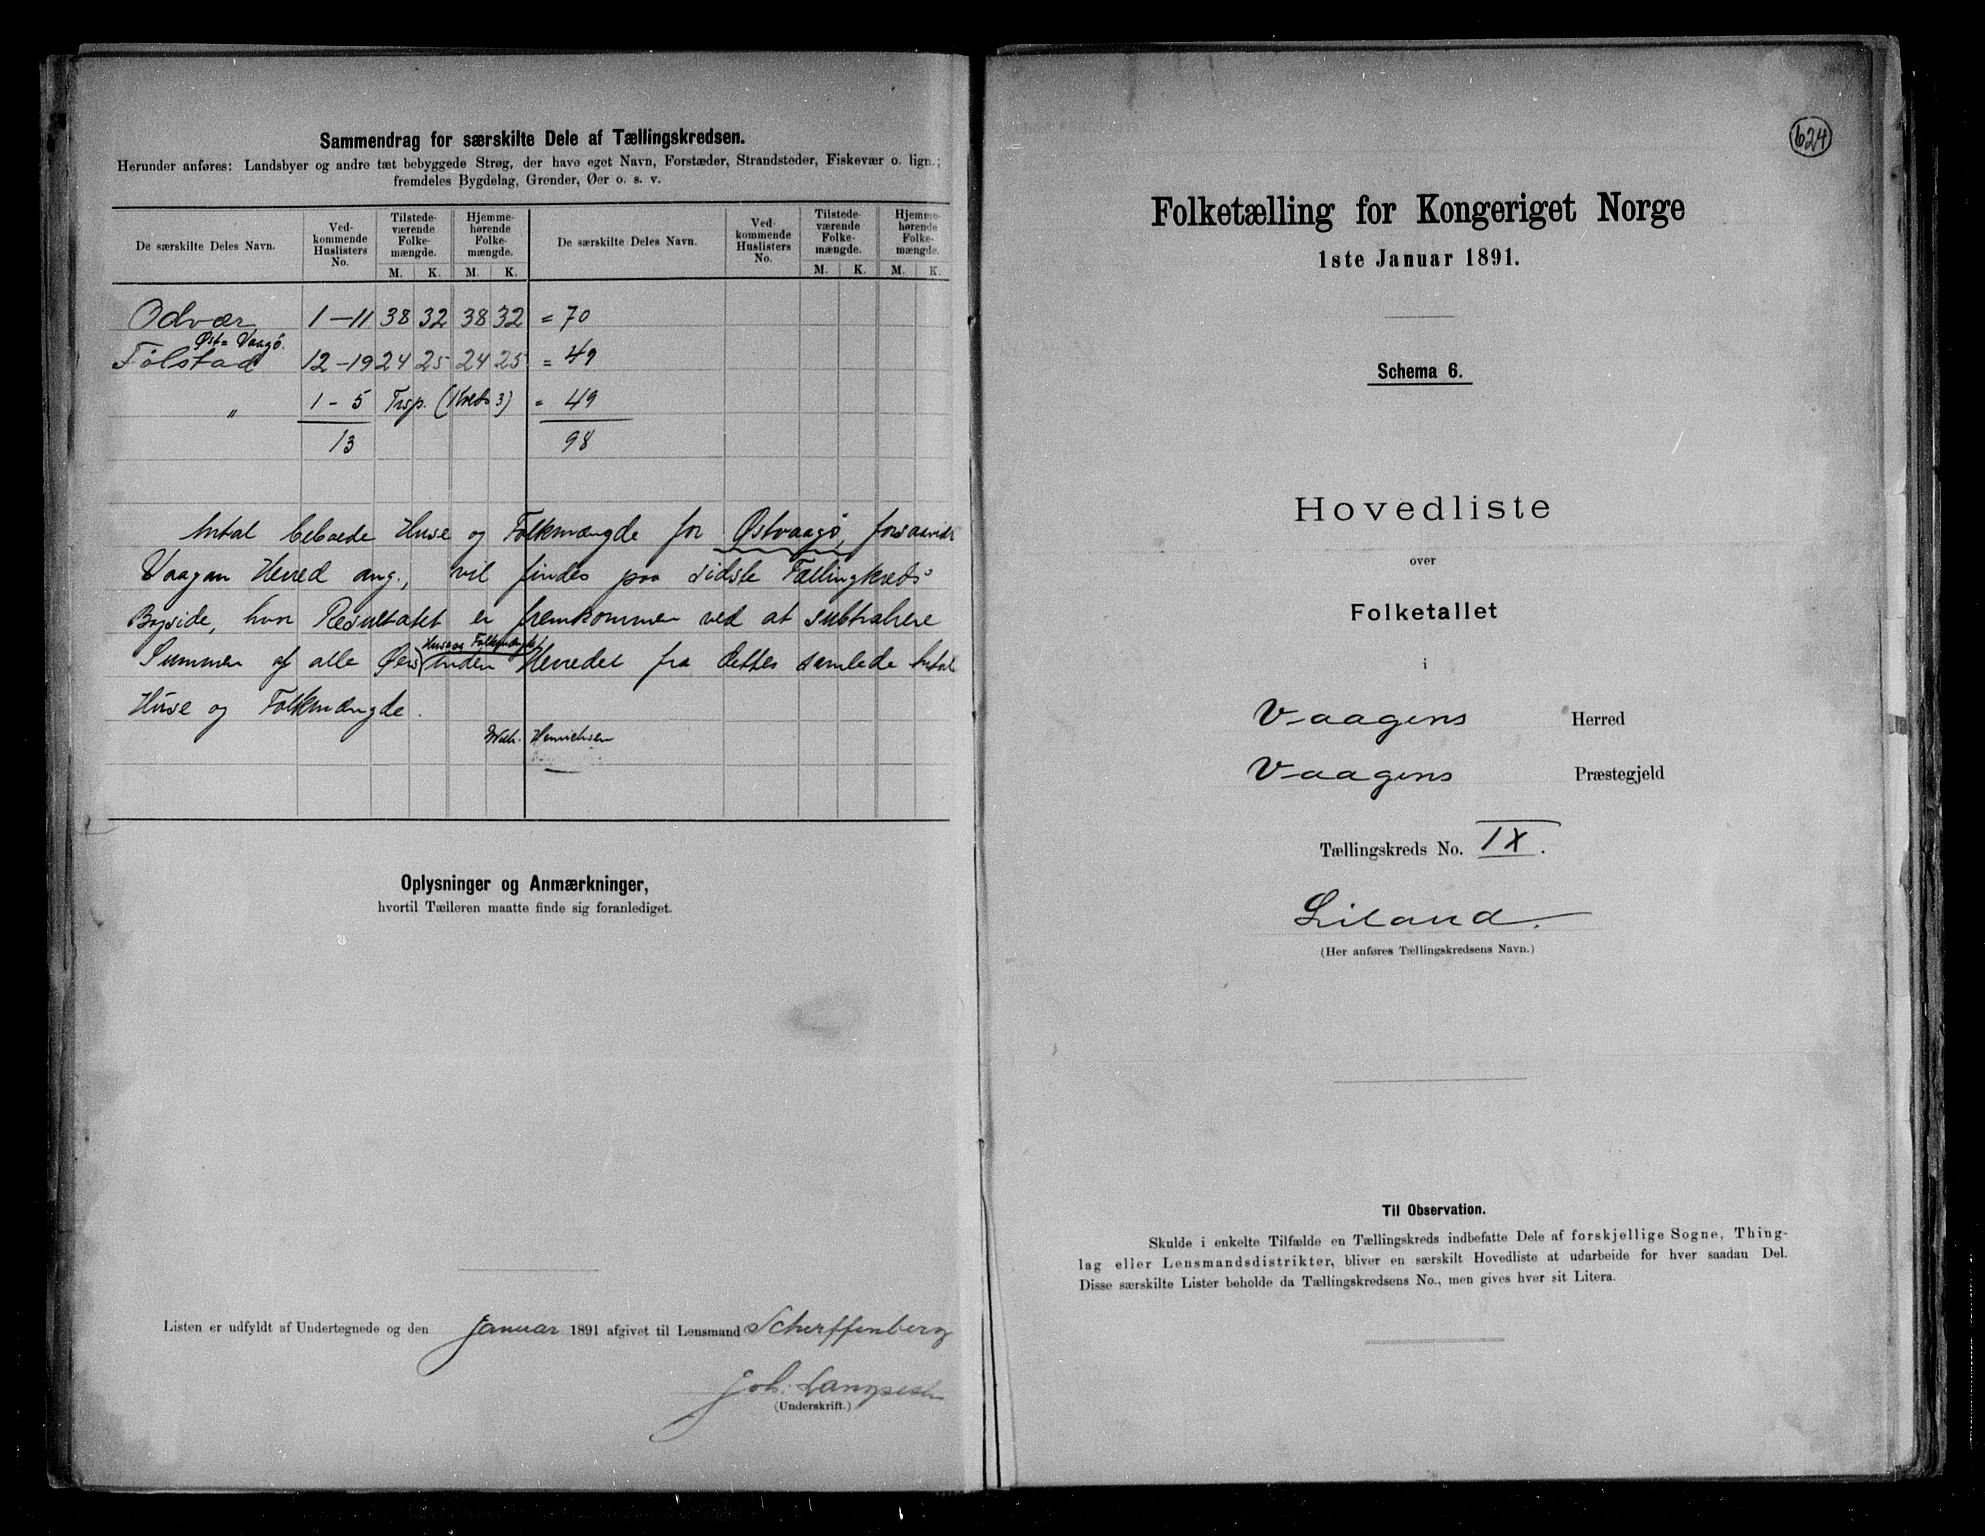 Sammendrag for særskilte Dele af Tællingskredsen.
Herunder anføres: Landsbyer og andre tæt bebyggede Strøg, der have eget Navn, Forstæder, Strandsteder, Fiskevær o. lign.;
fremdeles Bygdelag, Grender, Øer o. s. v.
De særskilte Deles Navn. Ved-kommende Huslisters No. Tilstede-værende Folke-mængde. Hjemme-hørende Folke-mængde. De særskilte Deles Navn. Ved-kommende Huslisters No. Tilstede-værende Folke-mængde. Hjemme-hørende Folke-mængde.
M. K. M. K. M. K. M. K.
Odvær 1-11 38 32 38 32 = 70
Øst-Vaagö.
Følstad 12-19 24 25 24 25 = 49
" 1-5 Trsp. (Kreds 3) = 49
13 98
Antal beboede Huse og Folkmængde for Østvaagö, forsaavidt
Vaagan Herred ang., vil findes paa sidste Tællingkreds'
Bagside, hvor Resultatet er fremkommen ved at subtrahere
Huse og Folkmængde
Summen af alle Øers inden Herredet fra dettes samlede Antal
Huse og Folkmængde.
Henrichsen
Oplysninger og Anmærkninger,
hvortil Tælleren maatte finde sig foranlediget.
Listen er udfyldt af Undertegnede og den Januar 1891 afgivet til Lensmand Scherffenberg
Joh.
(Underskrift.)
624
Folketælling for Kongeriget Norge
1ste Januar 1891.
Schema 6.
Hovedliste
over
Folketallet
i
Vaagens Herred
Vaagens Præstegjeld
Tællingskreds No. IX.
Liland.
(Her anføres Tællingskredsens Navn.)
Til Observation.
Skulde i enkelte Tilfælde en Tællingskreds indbefatte Dele af forskjellige Sogne, Thing-
lag eller Lensmandsdistrikter, bliver en særskilt Hovedliste at udarbeide for hver saadan Del.
Disse særskilte Lister beholde da Tællingskredsens No., men gives hver sit Litera.